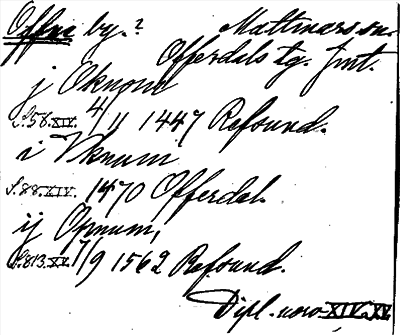 Offne by.? Mattmars sn.
Offerdals tg. Jmt.
j Oknone
S.58.XIV. 4/11 1447 Refsund.
i Vknum
S.88.XIV. 1470 Offerdal.
ij Opnum,
S.813.XV. 7/9 1562 Refsund.
Dipl. norv XIV, XV